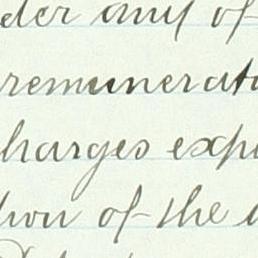 der any of
remunerat
harges exp
tion of the